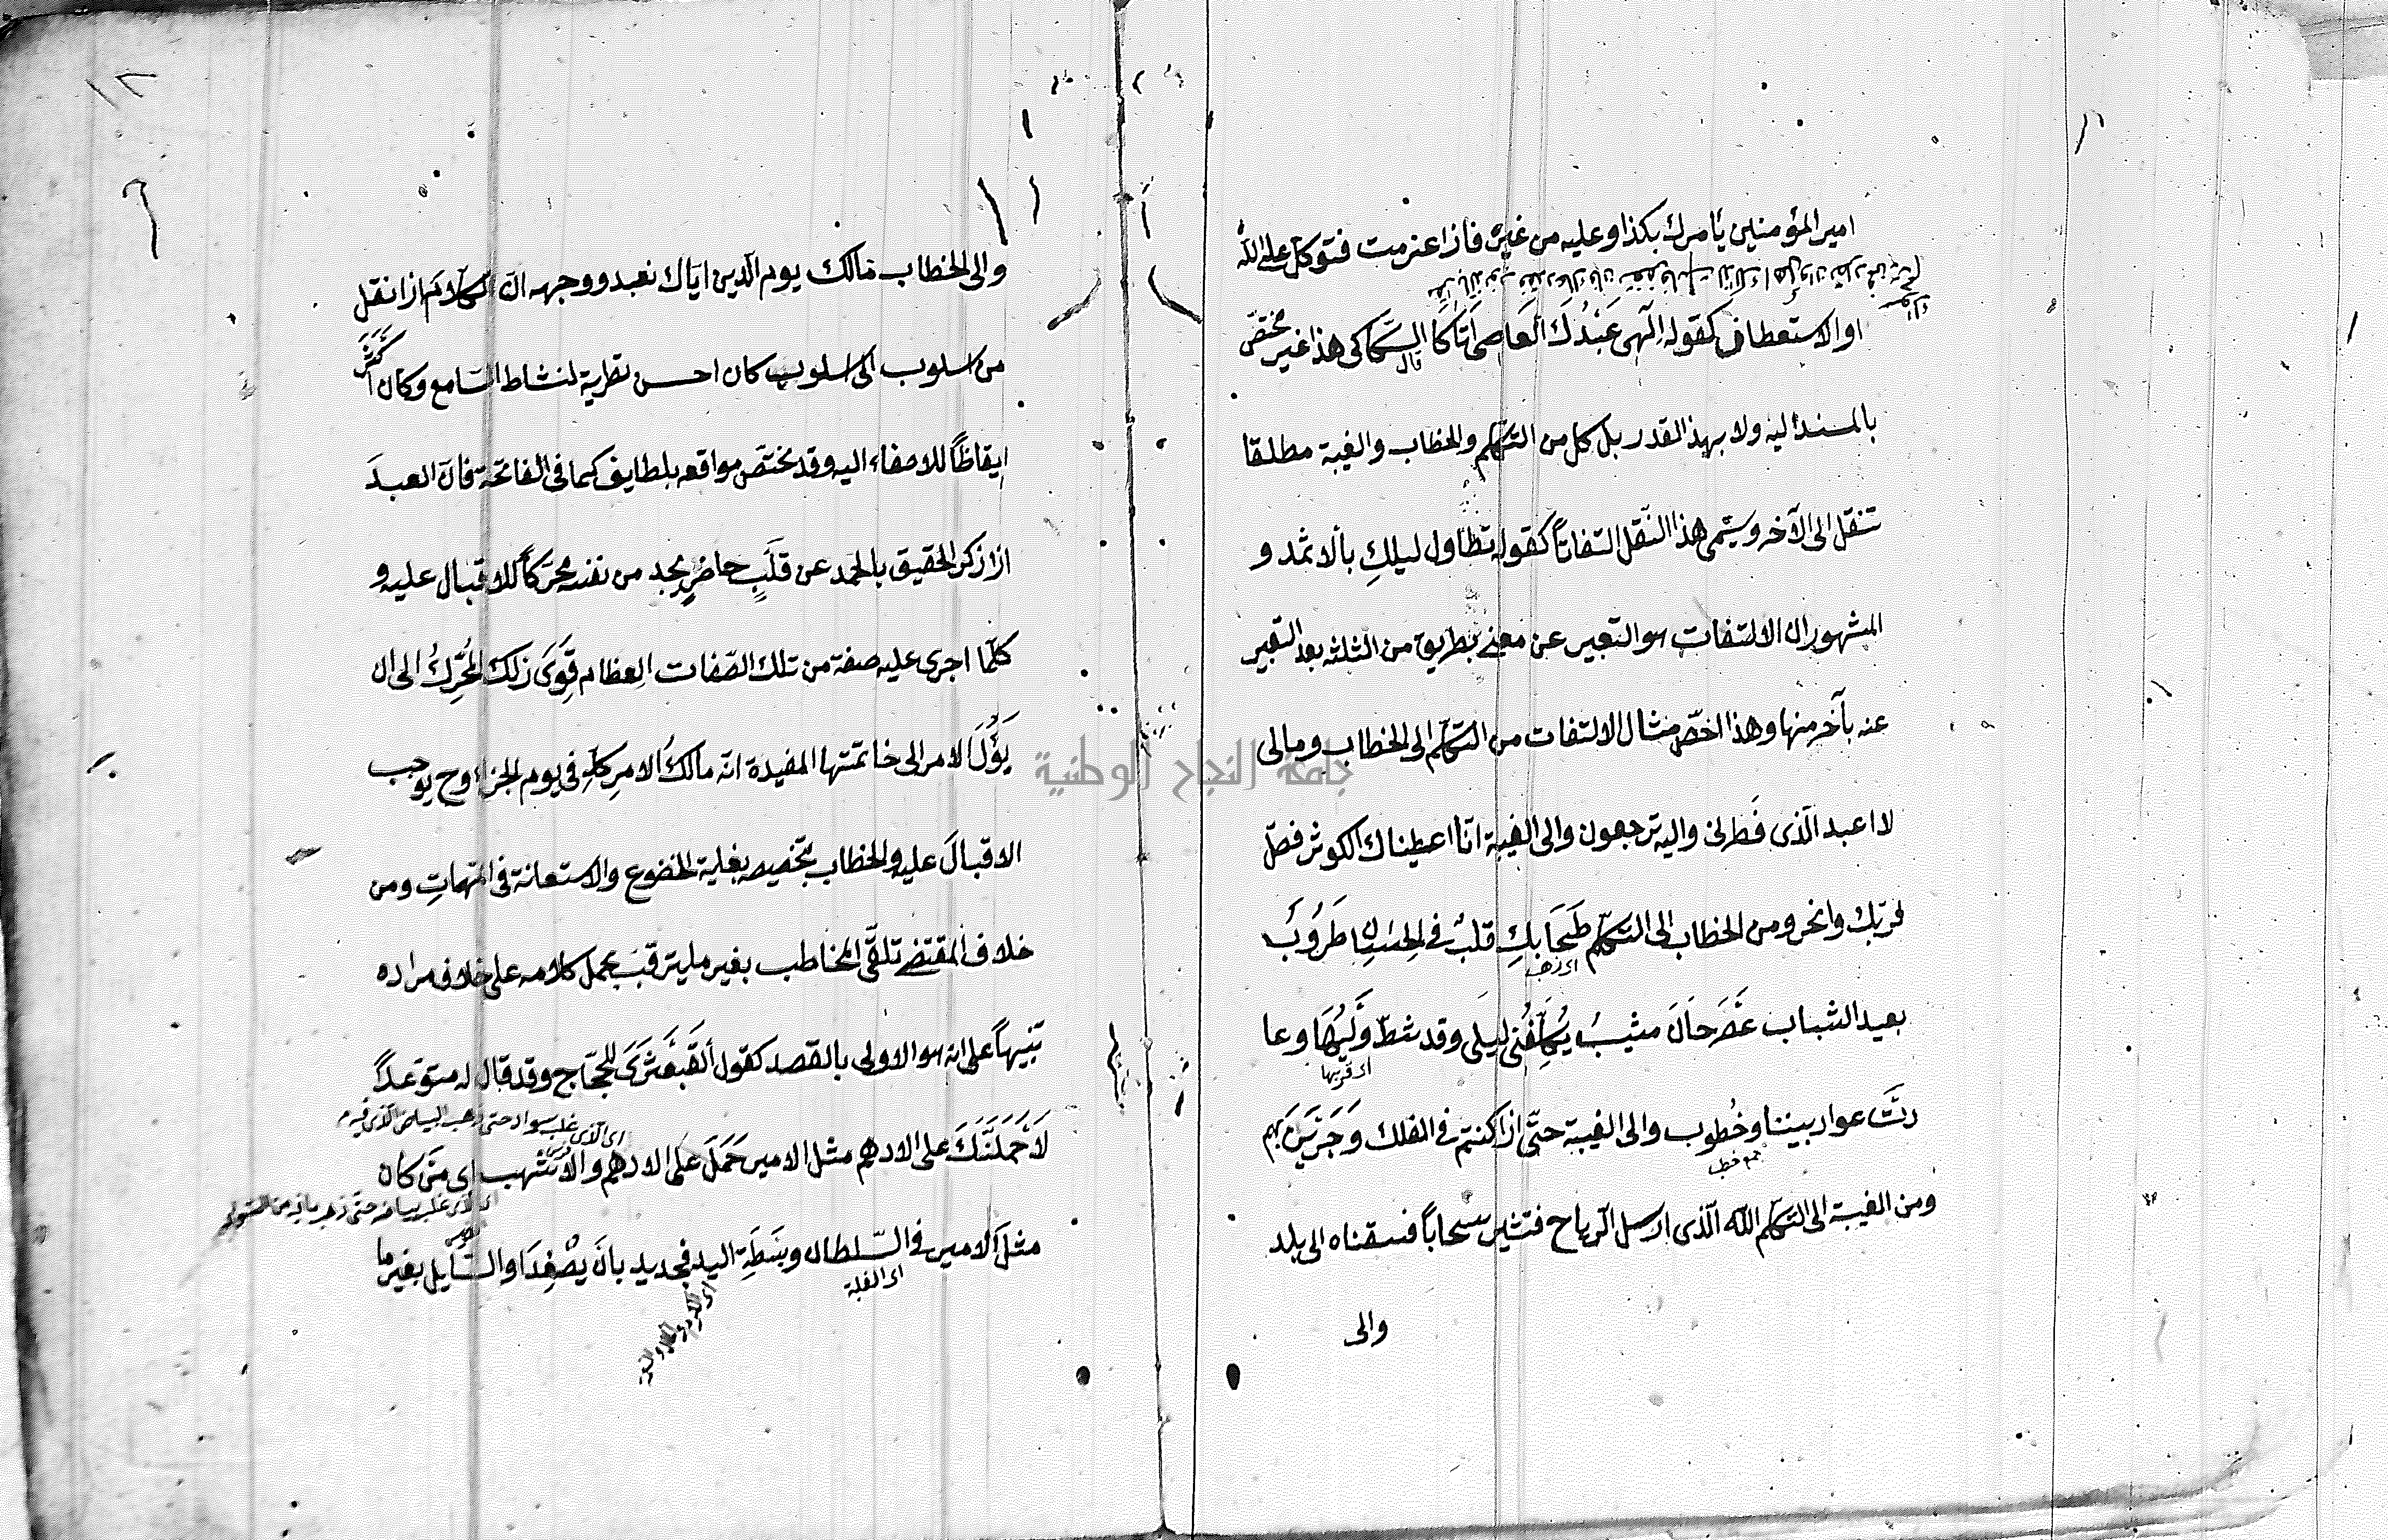 امير المؤمنين يأمرك بكذا وعليه من غيره فاذا عزمت فتوكل على الله
او الاستعطاف كقوله الهى عَبْدُكَ العَاصى أتَاكَا السّكاكى هذا غير مختصّ
قال
بالمسند اليه ولا بهذ القدر بل كل من التكلّم والخطاب والغيبة مطلقا
تنقل الى الآخر ويسمّى هذا النّقل التفاتاً كقوله تطاول ليلكِ بالاثمد و
المشهور ان الالتفات هو التعبير عن معنى بطريق من الثلثه بعد التعبير
عنه بآخر منها وهذا اخصّ مثال الالتفات من التكلّم الى الخطاب ومالى
لا اعبد الّذى فَطرنى واليه ترجعون والى الغيبة انّا اعطيناك الكوثر فصلّ
لربّك وانحر ومن الخطاب الى التكلّم طَحَا بكِ قلبٌ فى الحِسَانِ طَرُوبُ
اى ذهب
بعيد الشباب عَصْرَ حَانَ مشيبُ يُكلّفُنى ليلى وقد شطّ وَلْيُهَا وعا
اى قربها
دتْ عوادٍ بيننا وخُطوب والى الغيبة حتّى اذا كنتم فى الفلك وَجَرَيْنَ بهم
جمع خطب
ومن الغيبة الى التكلّم الله الّذى ارسل الرّياح فتثير سحاباً فسقناه الى بلد
والى
والى الخطاب مالك يوم الدّين ايّاك نعبد ووجهه انّ الكلامَ اذا نقل
من اسلوب الى اسلوب كان احسن تطرية لنشاط السّامع وكان اكثَرَ
ايقاظاً للاصغاء اليه وقد تختصّ مواقعه بلطايف كما فى الفاتحة فانّ العبدَ
اذا ذكر الحقيق بالحمد عن قلَبٍ حاضرٍ يجد من نفسه محرّكاً للاقبال عليه و
كلّما اجرى عليه صفة من تلك الصّفات العِظام قوَِىَ ذلك المُحَرّكُ الى ان
يَؤُلَ الامر الى خاتمتها المفيدة انّه مالكُ الامرِ كلّه فى يوم الجزاء وح يوجب
الاقبالَ عليه والخطاب بتخصيصه بغاية الخضوع والاستعانة فى المهمّاتِ ومن
خلاف المقتضى تلقّى المخاطب بغير ما يترقب بحمل كلامه على خلاف مراده
تنبيهاً على انه هو الاولى بالقصد كقول القَبَعْثَرَىَ للحجّاج وقد قال له متوعداً
اى الّذى غلب سواده حتى ذهب البياض الّذى فيه
لَاَحْمَلَنَّكَ على الادهم مثل الامير حَمَلَ على الادهم والأشهب اى مَن كان
مثلَ الامير فى السّلطان وبَسَطَةِ اليد فجدير بانَ يَصْفِدَ او السّايل بغير ما
اى الغلبة
جامعة النجاح الوطنية